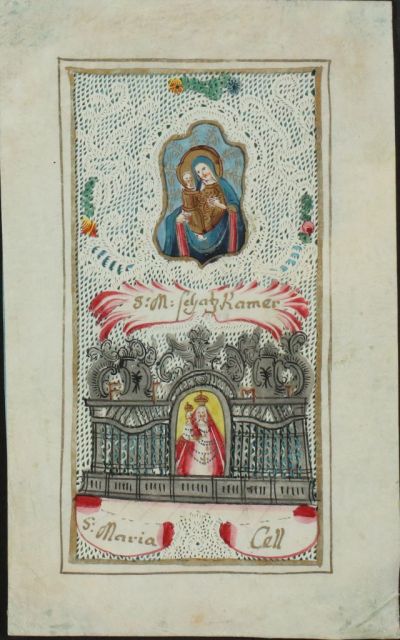 S: M: schatz Kamer
S: Maria Cell